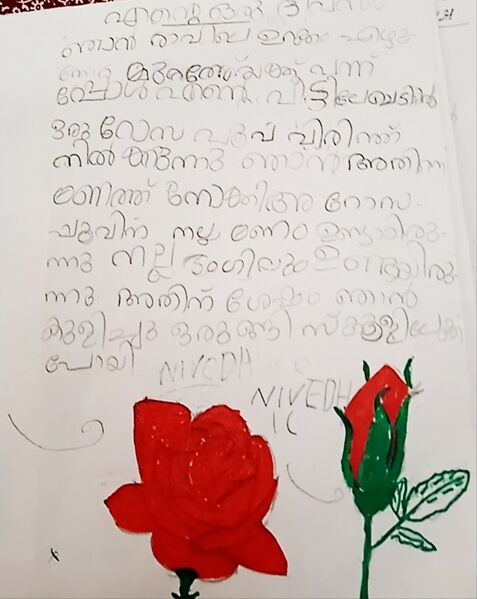 എന്റെ ഒരു ദിവസം
ഞാൻ രാവിലെ ഉറക്കം എഴു
ന്നേറ്റു മുറ്റത്തേയ്ക്ക് വന്ന്
പ്പോൾ എന്റെ വീട്ടിലെ ചെടിൽ
ഒരു റോസ പൂവ് വിരിഞ്ഞ്
നിൽക്കുന്നു ഞാൻ അതിനെ
മണത്ത് നോക്കി റോസ
പൂവിന് നല്ല മണം ഉണ്ടായിരു
ന്നു നല്ല ഭംഗിയും ഉണ്ടായിരു
ന്നു അതിന് ശേഷം ഞാൻ
കുളിച്ചു ഒരുങ്ങി സ്ക്കൂളിലേക്ക്
പോയി NIVEDH
NIVEDH
1C